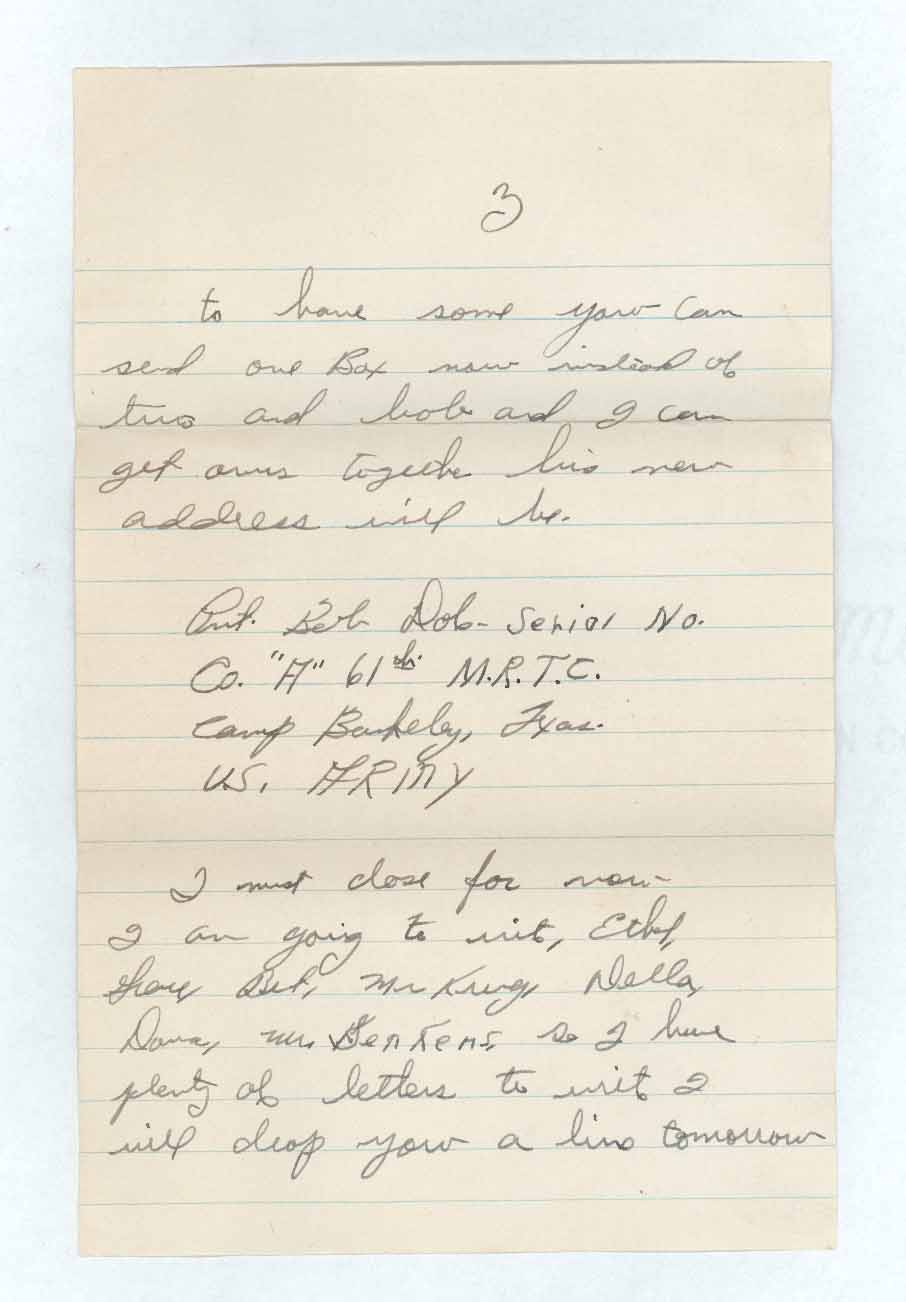 3
to have some yow can
send one Box now instead of
two and bob and I can
get ours together his new
address will be.
Pvt. Bob Dob- Serial No.
Co. "A" 61th M.R.T.C.
Camp Barkeley, Texas.
U.S. ARMY
I must close for now
I am going to writ, Ethel,
Bet, Mr Krug, Nella,
Dora, Mr. Genkens, so I have
plenty of letters to writ I
will drop yow a line tomorrow